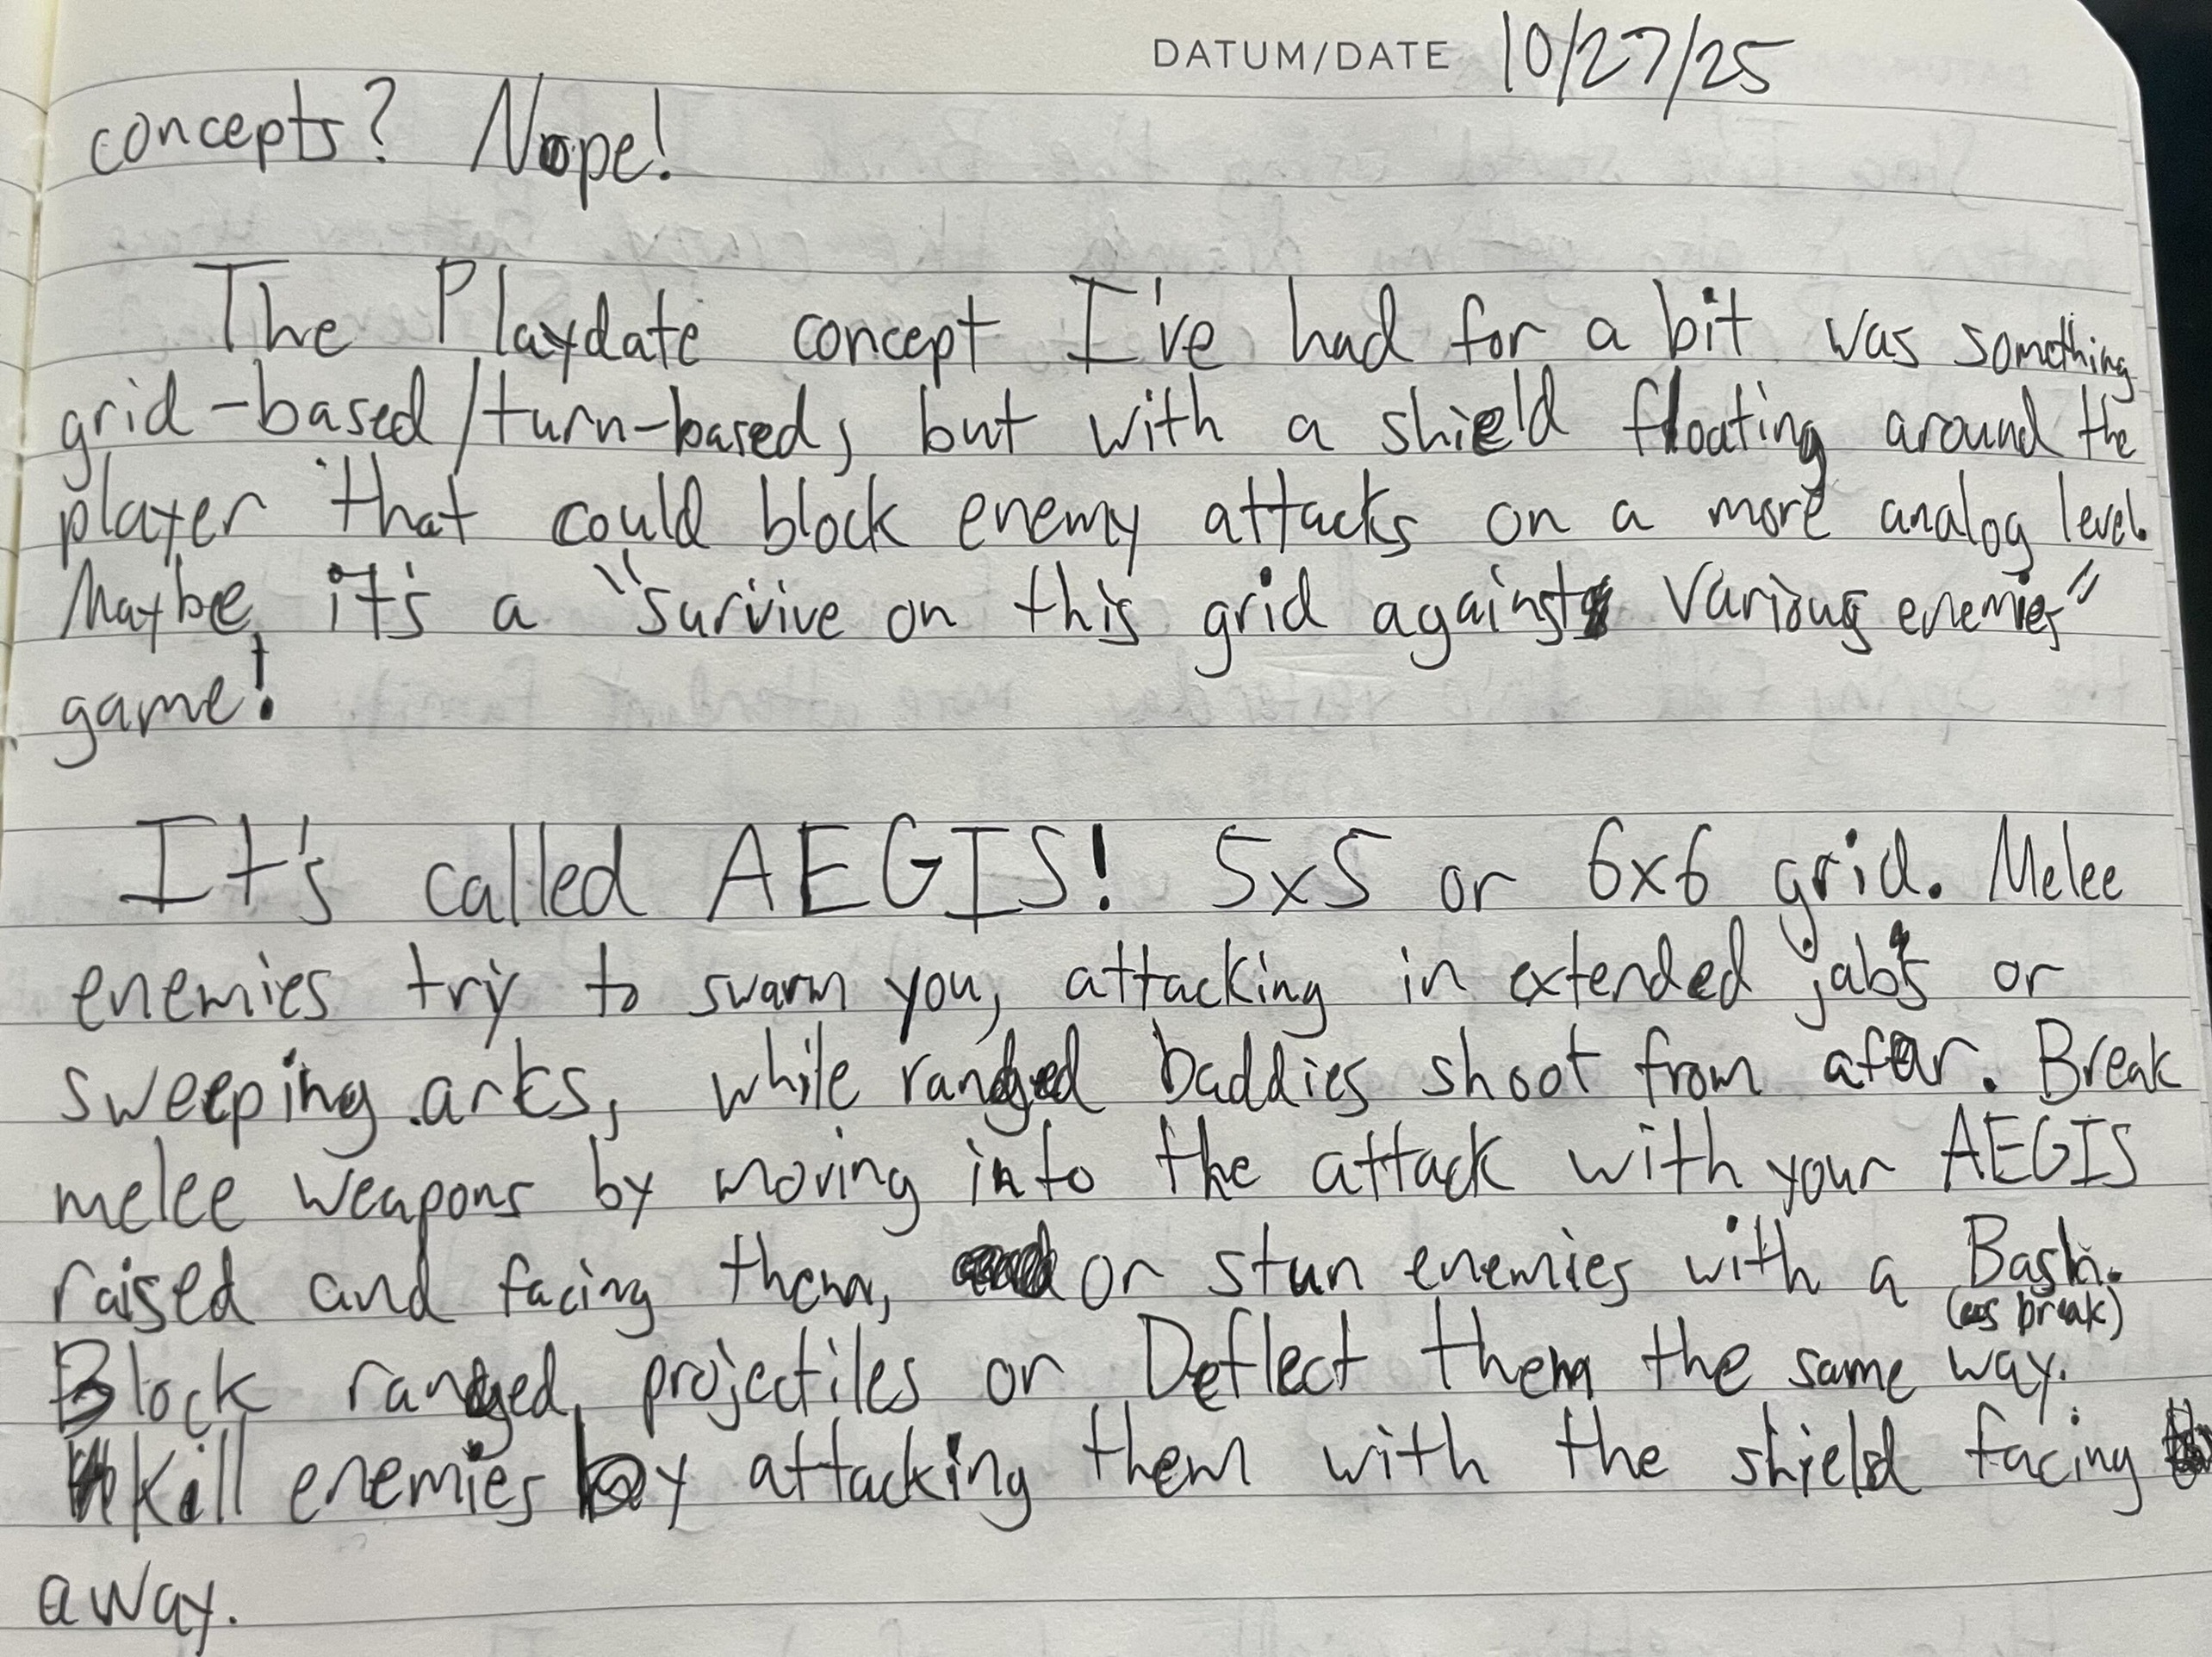 DATUM/DATE 10/27/25
concepts? Nope!
The Playdate concept I've had for a bit was something
grid-based/turn-based, but with a shield floating around the
player that could block enemy attacks on a more analog level.
Maybe it's a "survive on this grid against various enemies"
game!
It's called AEGIS! 5x5 or 6x6 grid. Melee
enemies try to swarm you, attacking in extended jabs or
sweeping arcs, while ranged baddies shoot from afar. Break
melee weapons by moving into the attack with your AEGIS
raised and facing them, or stun enemies with a Bash.
(as break)
Block ranged projectiles or Deflect them the same way.
Kill enemies by attacking them with the shield facing
away.